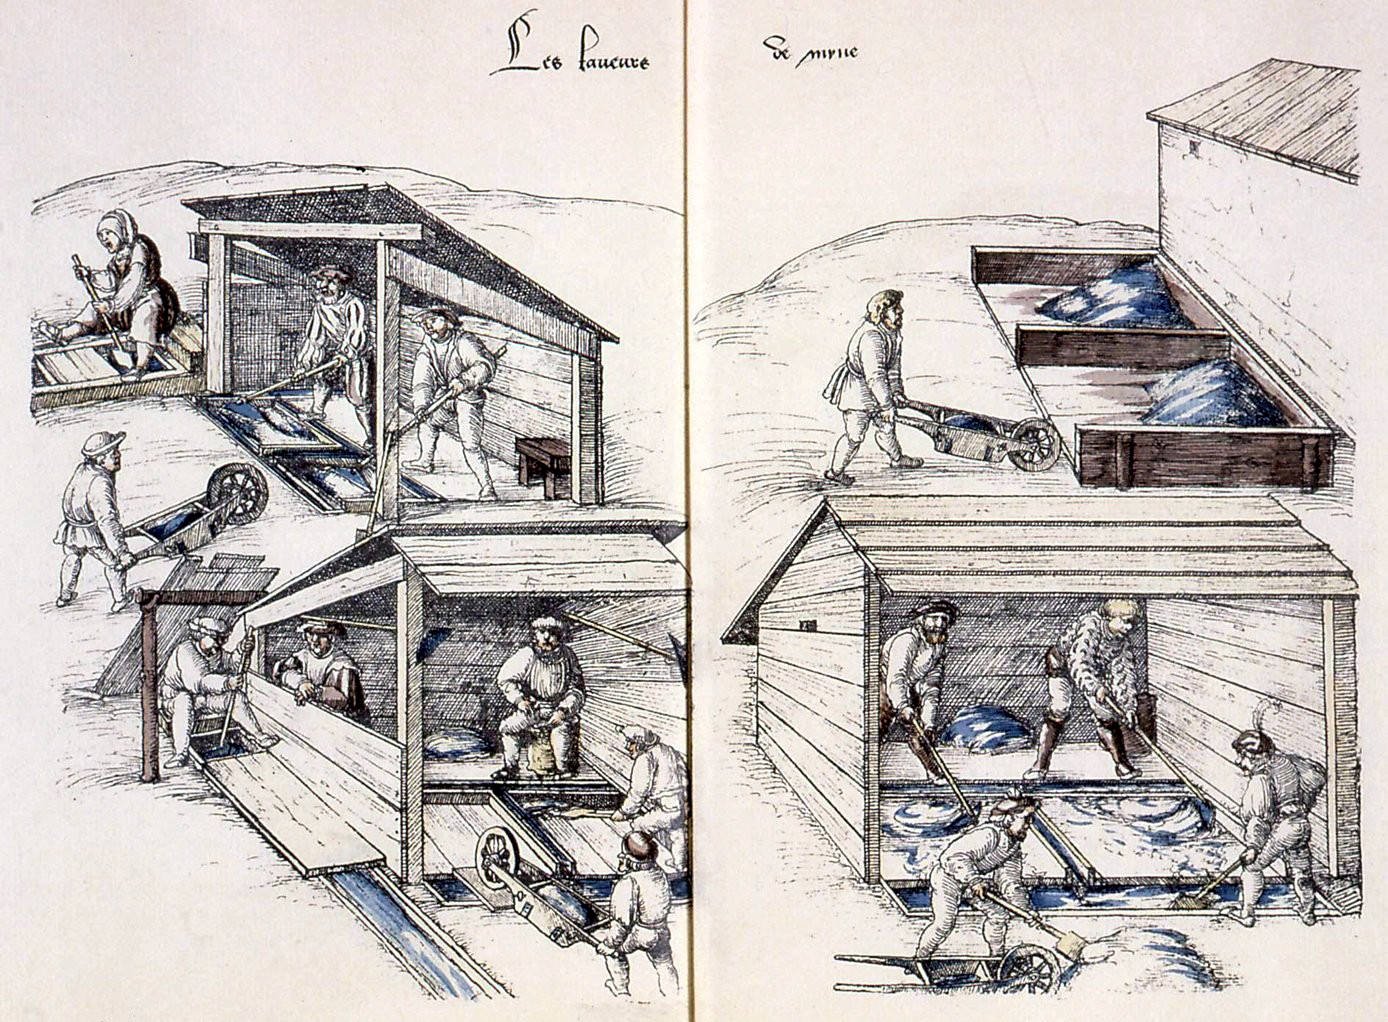 Les laveurs de myne